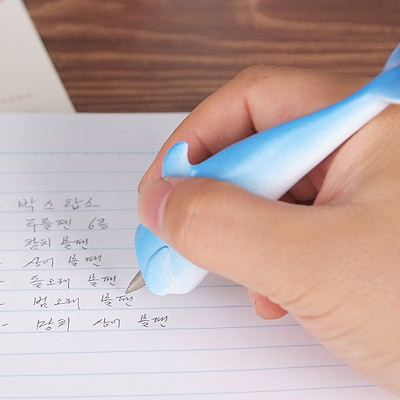 - 박스팝소
루믈펜 6종
참치 볼펜
- 상어 볼펜
- 돌고래 볼펜
- 범고래 볼펜
- 망치 상어 볼펜